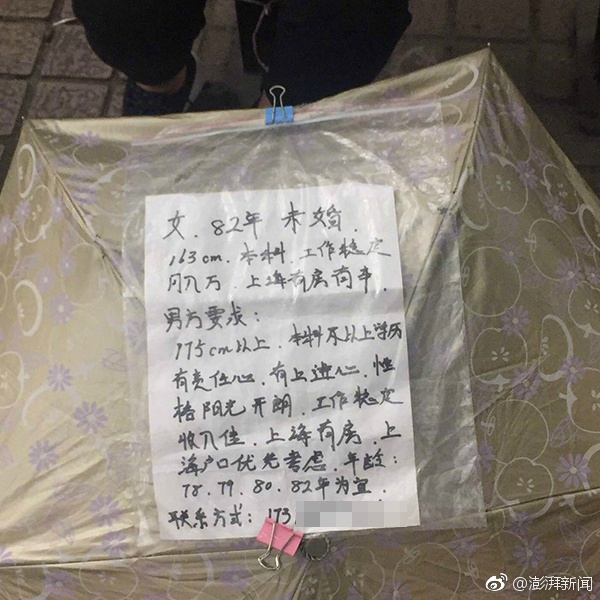 女.82年 未婚.
163cm.本科.工作稳定
月入万.上海有房有车.
男方要求:
175cm以上.本科及以上学历
有责任心.有上进心.性
格阳光开朗.工作稳定
收入佳.上海有房.上
海户口优先考虑.年龄:
78.79.80.82年为宜.
联系方式:173
@澎湃新闻